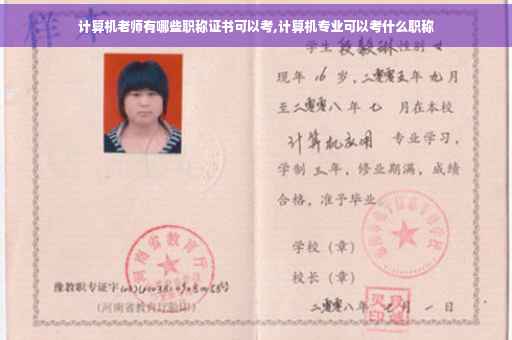 计算机老师有哪些职称证书可以考,计算机专业可以考什么职称
样本
学生 段毅琳 性别 女
现年 16 岁,二零零五年 九 月
至二零零八年 七 月在本校
计算机应用 专业学习,
学制 三 年,修业期满,成绩
合格,准予毕业。
学校(章)
校长(章)
二零零八年 七 月 一 日
河南省教育厅
豫教职专证字
(河南省教育厅验印)